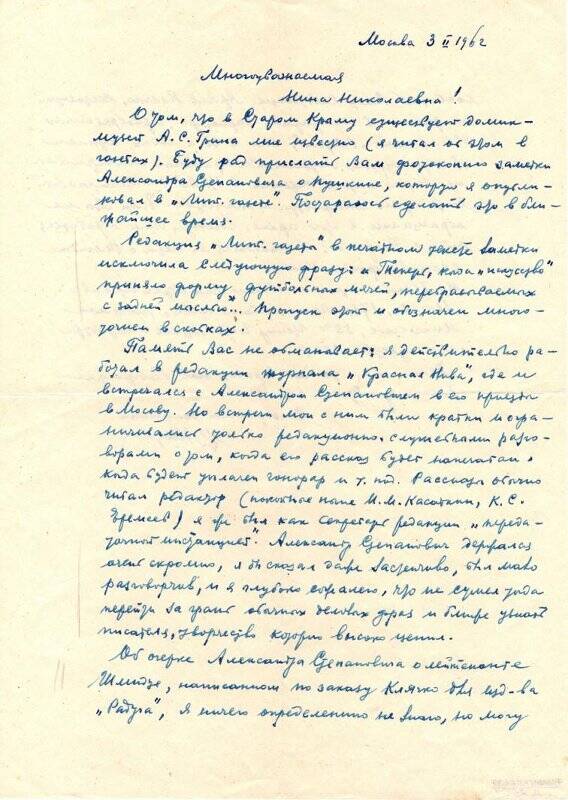 Москва 3 II 1962
Многоуважаемая
Нина Николаевна!
О том, что в Старом Крыму существует домик-
музей А.С. Грина мне известно (я читал об этом в
газетах). Буду рад прислать Вам фотокопию заметки
Александра Степановича о Пушкине, которую я опубли-
ковал в "Лит. газете". Постараюсь сделать это в бли-
жайшее время.
Редакция "Лит. газеты" в печатном тексте заметки
исключила следующую фразу: "Теперь, когда "искусство"
приняло форму футбольных мячей, перебрасываемых
с задней мыслью"... Пропуск этот и обозначен много-
точием в скобках.
Память Вас не обманывает: я действительно ра-
ботал в редакции журнала "Красная Нива", где и
встречался с Александром Степановичем в его приезды
в Москву. Но встречи мои с ним были кратки и огра-
ничивались только редакционно-служебными разго-
ворами о том, когда его рассказ будет напечатан,
когда будет уплачен гонорар и т. п. Рассказы обычно
читал редактор (покойные ныне И.М. Касаткин, К.С.
Еремеев) я же был как секретарь редакции "переда-
точной инстанцией". Александр Степанович держался
очень скромно, я бы сказал даже застенчиво, был мало
разговорчив, и я глубоко сожалею, что не сумел тогда
перейти за грань обычных деловых фраз и ближе узнать
писателя, творчество которого высоко ценил.
Об очерке Александра Степановича о лейтенанте
Шмидте, написанном по заказу Клячко для изд-ва
"Радуга", я ничего определенно не знаю, но могу